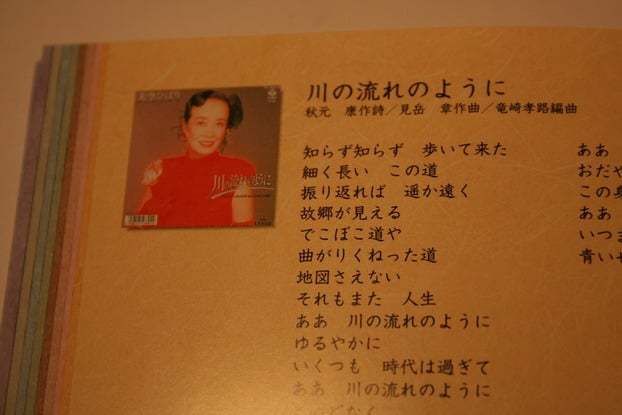 美空ひばり
川の流れのように
川の流れのように
秋元　康作詩／見岳　章作曲／竜崎孝路編曲
知らず知らず　歩いて来た
細く長い　この道
振り返れば　遥か遠く
故郷が見える
でこぼこ道や
曲がりくねった道
地図さえない
それもまた　人生
ああ　川の流れのように
ゆるやかに
いくつも　時代は過ぎて
ああ　川の流れのように
ああ
おだや
この身
ああ
いつま
青いせ